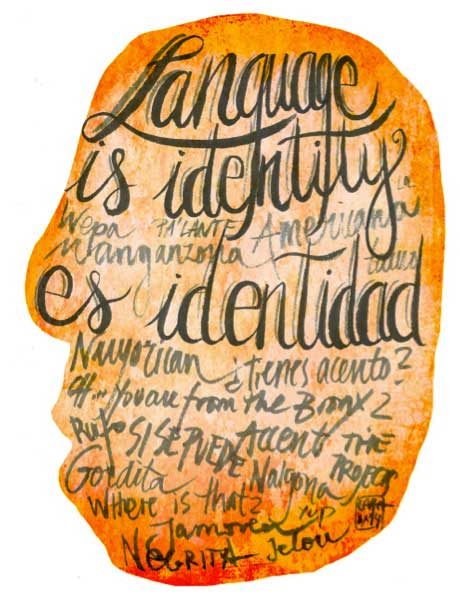 Language
is identity,
Wepa PA'LANTE Americana LA
Wanganzona
es identidad
Nuyorican ¿tienes acento?
You are from the Bronx?
SI SE PUEDE Accent THE
Gordita Nalgona PROJECTS
Where is that?
Jamona
NEGRITA Jelou